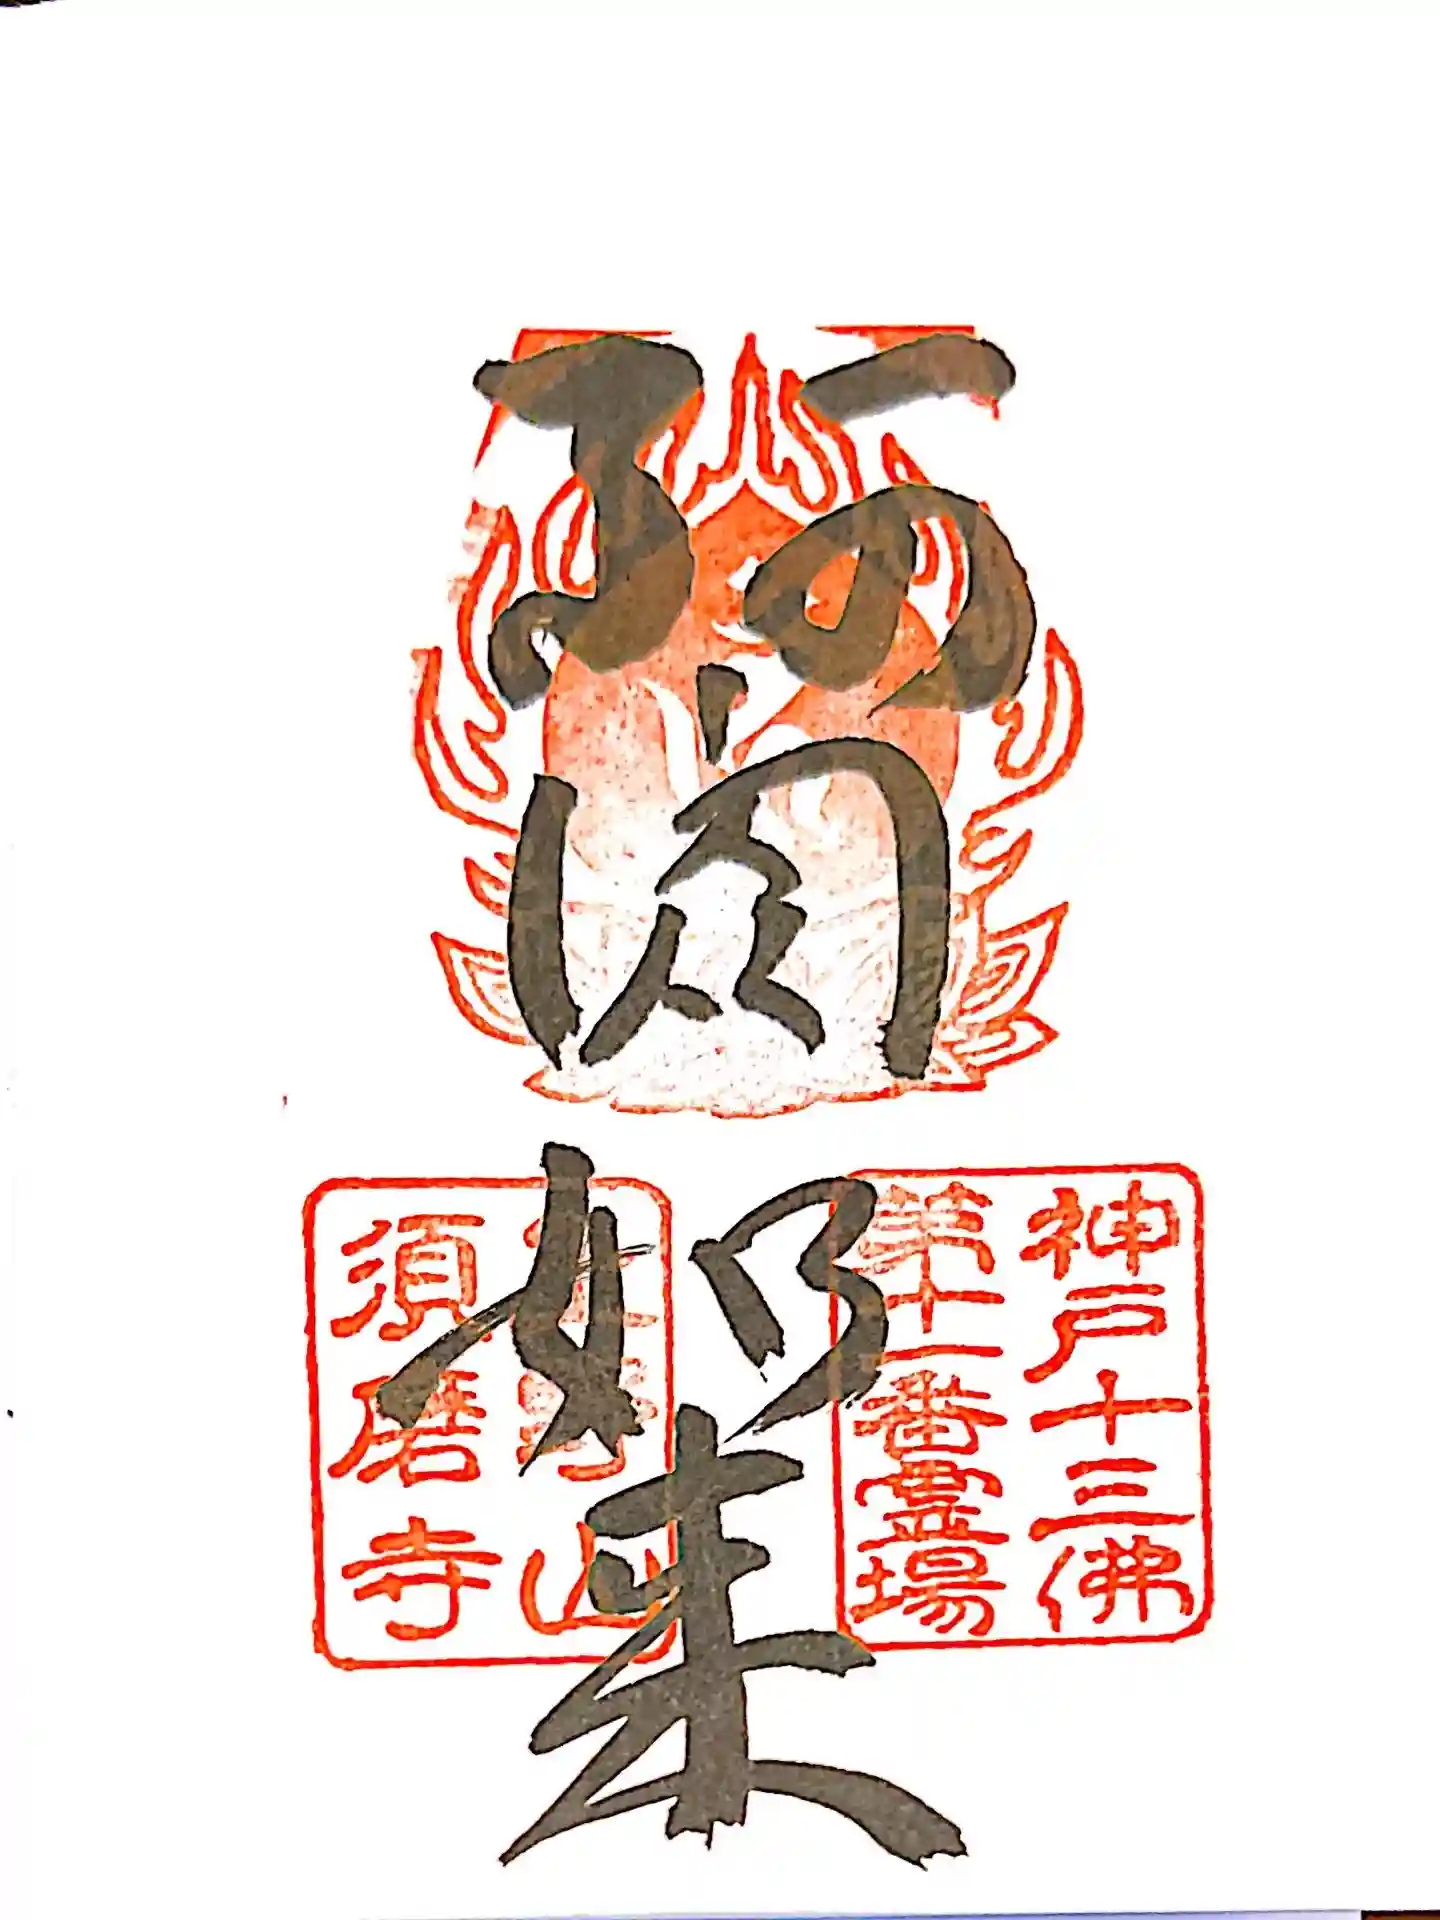 神戸十三佛
第十一番霊場
阿閦如来
上野山
須磨寺